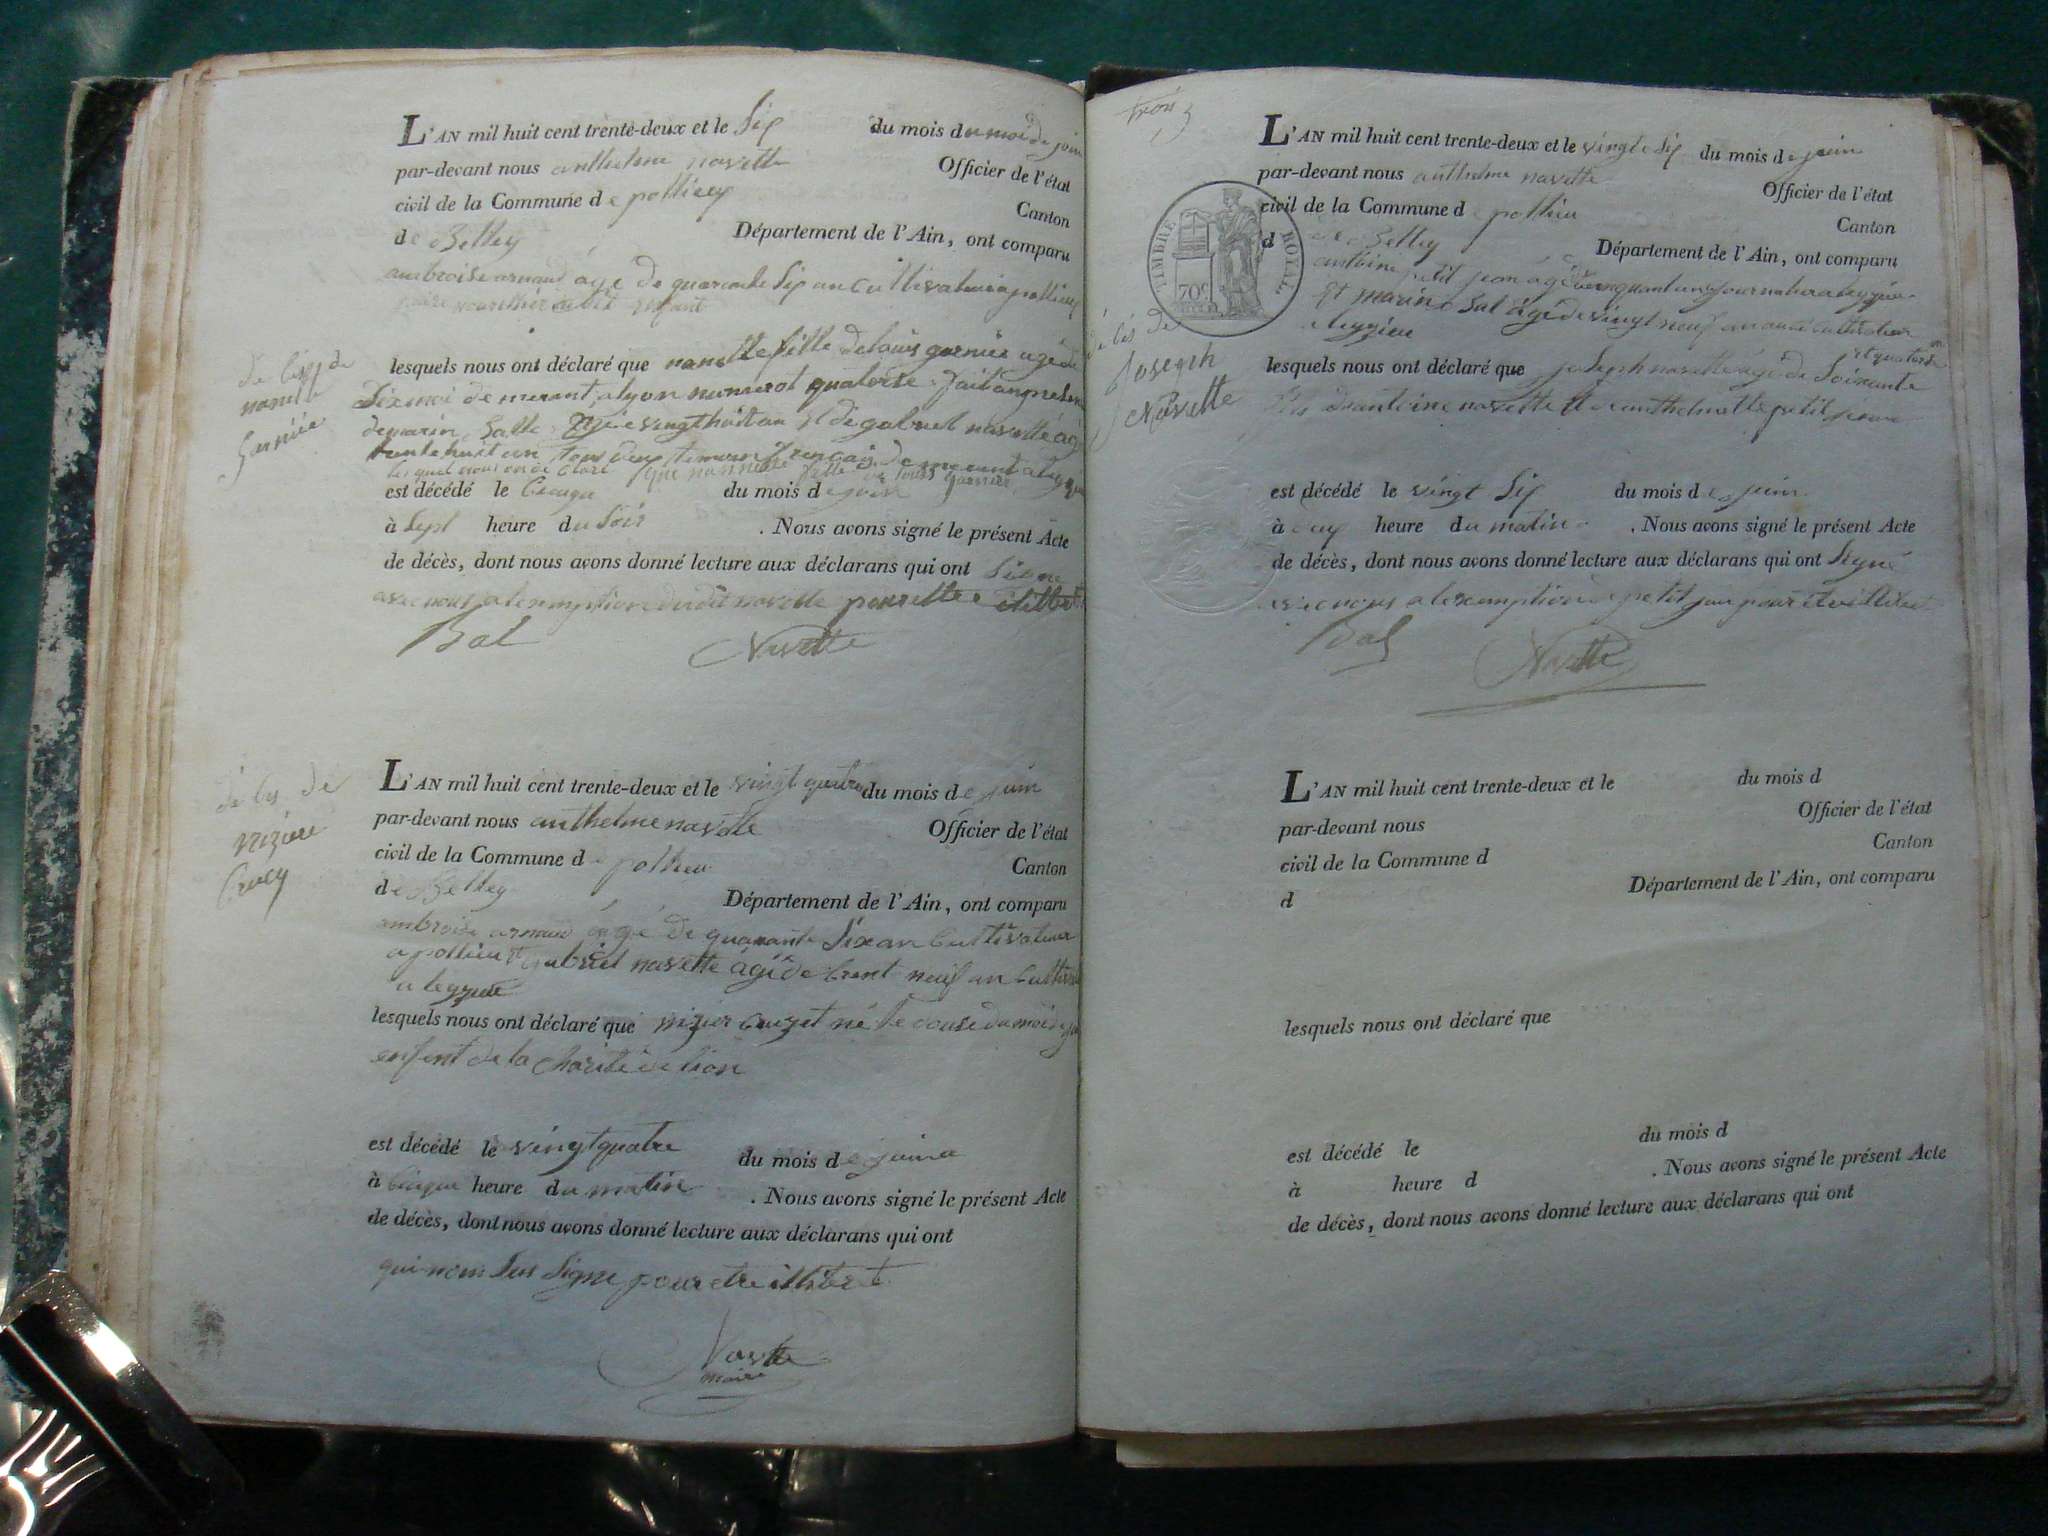 L'AN mil huit cent trente-deux et le Six du mois du moi de join
par-devant nous anthelme navette Officier de l'état
civil de la Commune de pollieu Canton
de Belley Département de l'Ain, ont comparu
ambroise arnaud âge de quarante Six an cultivateur a pollieu
père nourisier enfant
de nanette garniée
lesquels nous ont déclaré que nanette fille de louis garnier agé de
Dix moi demeurant a lyon numerot quatorse
de marin Balle agé vingt huit an et de gabriel navette agé
trente huit an tous deux temoin demeurant a leyzieu
les quel nous on déclaré que nannette fille de louis garnier
est décédé le Cinque du mois de juin
à Sept heure du Soir . Nous avons signé le présent Acte
de décès, dont nous avons donné lecture aux déclarans qui ont Signé
avec nous a lexemption dudit navette pour être illitteré
Bal Navette
décès de
nizier
Cruzy
L'AN mil huit cent trente-deux et le vingt quatre du mois de juin
par-devant nous anthelme navette Officier de l'état
civil de la Commune de pollieu Canton
de Belley Département de l'Ain, ont comparu
ambroise arnaud âgé de quarante Six an Cultivateur
a pollieu et gabriel navette âgé de trent neuf an Cultiva
a leyzieu
lesquels nous ont déclaré que nizier né le douse du moi de
enfent de la charité de lion
est décédé le vingt quatre du mois de juin
à Cinque heure du matin . Nous avons signé le présent Acte
de décès, dont nous avons donné lecture aux déclarans qui ont
qui nons sus Signe pour etre illiteret
Navette
maire
trois 3
TIMBRE ROYAL
70c
L'AN mil huit cent trente-deux et le vingt Six du mois de juin
par-devant nous anthelme navette Officier de l'état
civil de la Commune de pollieu Canton
de Belley Département de l'Ain, ont comparu
antoine petit jean âgé de cinquant an journalier a leyzieu
et marin Bal âgé de vingt neuf an aussi cultivateur
a leyzieu
décès de
Joseph
Navette
lesquels nous ont déclaré que joseph navette âgé de Soixante et quatorse an
fils d'antoine navette et de anthelmette petit jean
est décédé le vingt Six du mois de juin
à heure du matin . Nous avons signé le présent Acte
de décès, dont nous avons donné lecture aux déclarans qui ont Signé
avec nous a lexemption de petit jean pour être
Bal Navette
L'AN mil huit cent trente-deux et le du mois d
par-devant nous Officier de l'état
civil de la Commune d Canton
d Département de l'Ain, ont comparu
lesquels nous ont déclaré que
est décédé le du mois d
à heure d . Nous avons signé le présent Acte
de décès, dont nous avons donné lecture aux déclarans qui ont